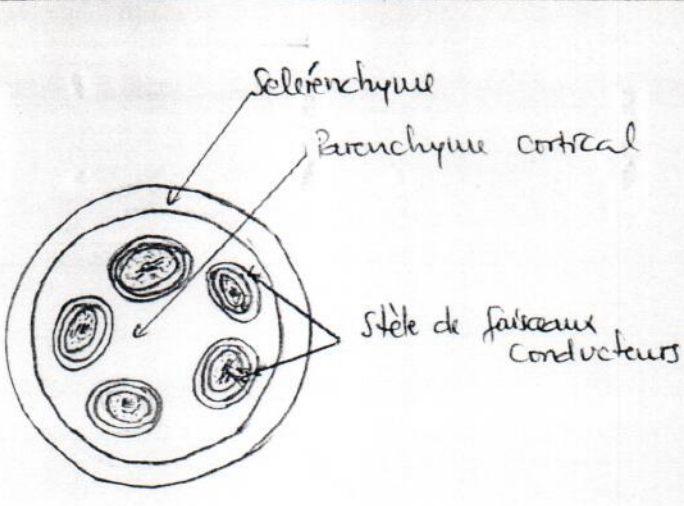 Sclérenchyme
Parenchyme cortical
Stèle de faisceaux
conducteurs